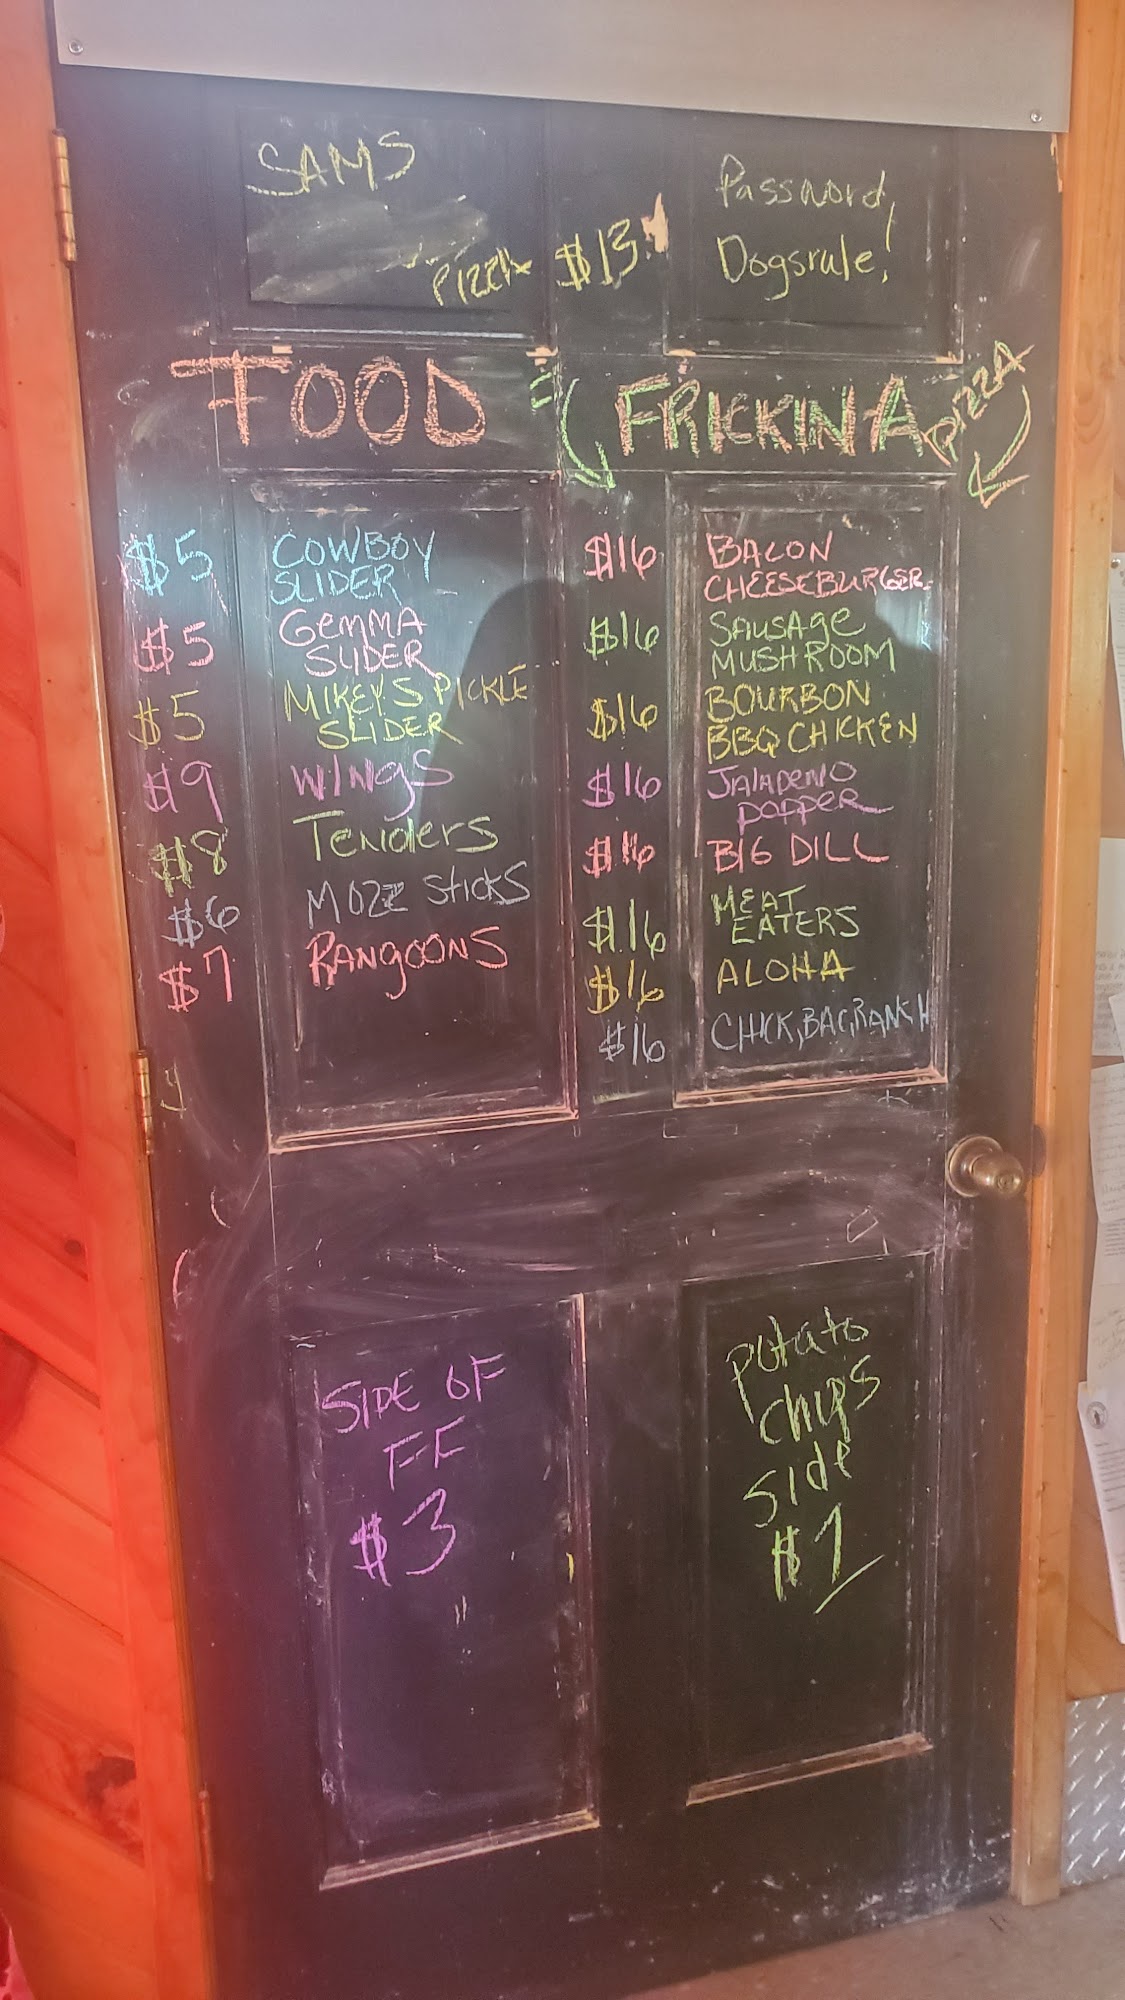 SAMS
PIZZA $13
Password!
Dogsrule!
FOOD
FRICKIN-A PIZZA
$5 COWBOY
SLIDER
$5 GEMMA
SLIDER
$5 MIKEYS PICKLE
SLIDER
$9 WINGS
$8 Tenders
$6 MOZZ STICKS
$7 RANGOONS
$16 BACON
CHEESEBURGER
$16 SAUSAGE
MUSHROOM
$16 BOURBON
BBQ CHICKEN
$16 JALAPENO
POPPER
$16 BIG DILL
$16 MEAT
EATERS
$16 ALOHA
$16 CHICK, BAC, RANCH
SIDE OF
FF
$3
Potato
Chips
Side
$1